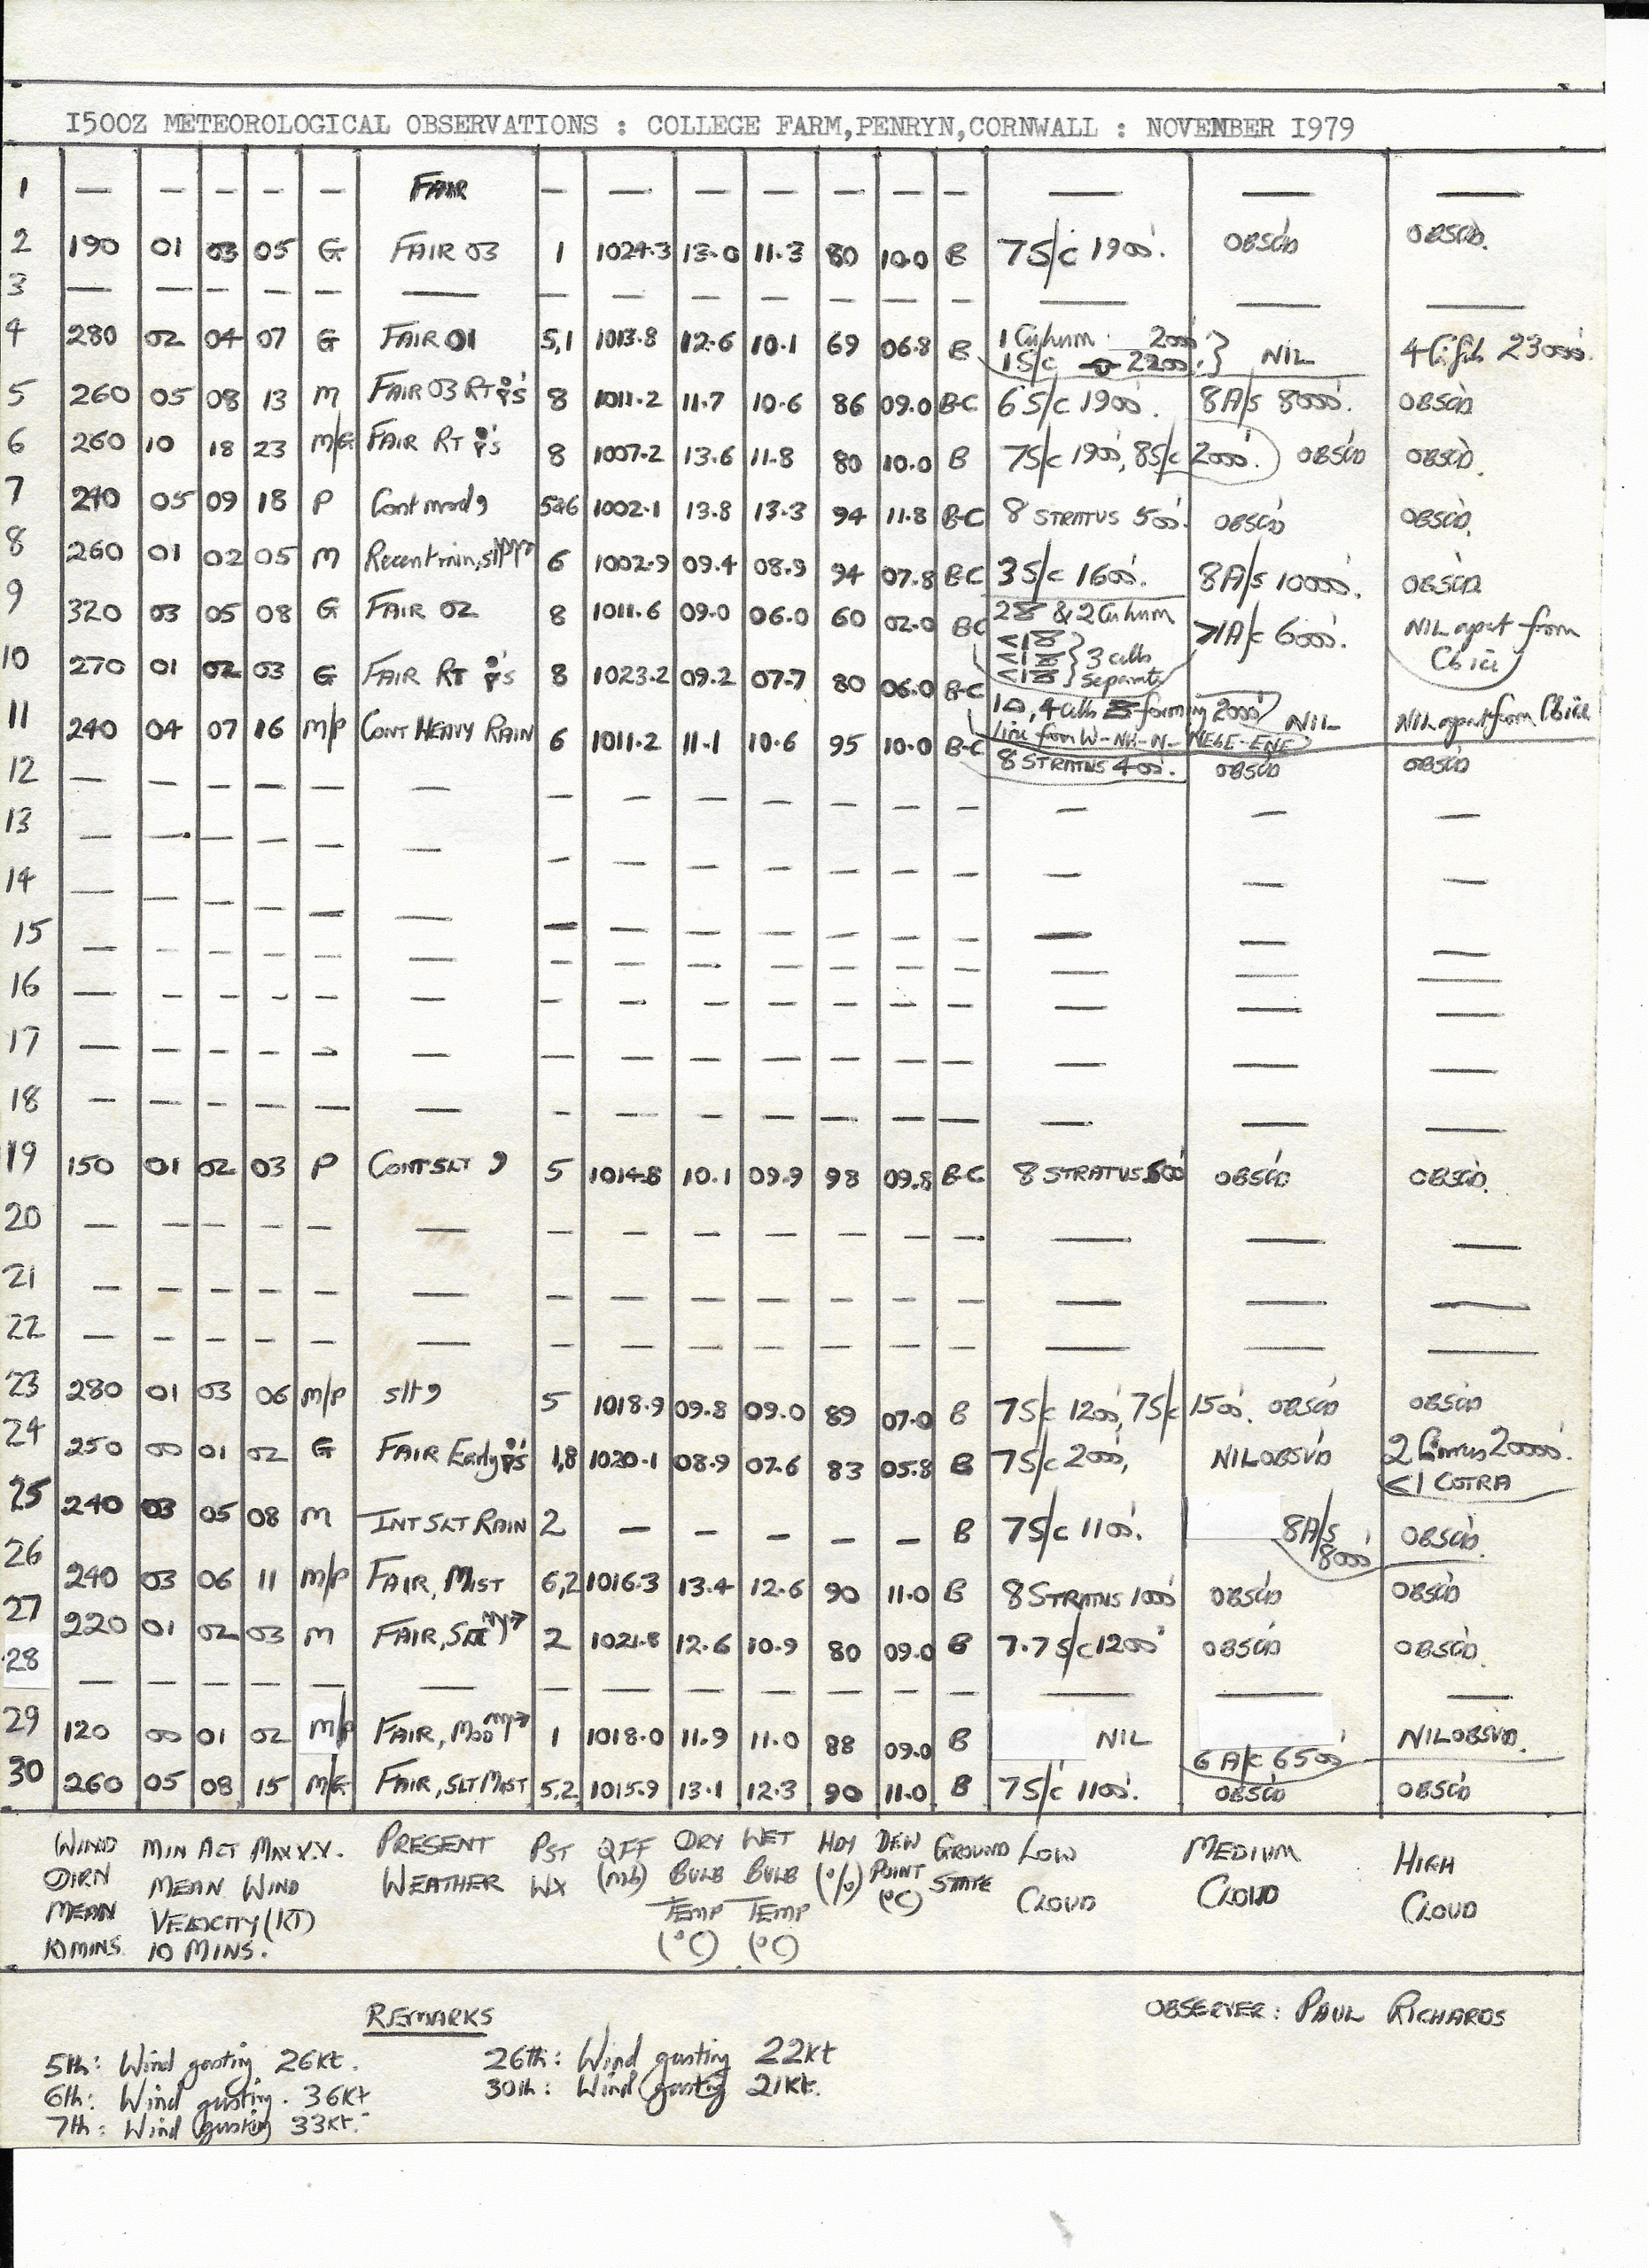 1500Z METEOROLOGICAL OBSERVATIONS : COLLEGE FARM,PENRYN,CORNWALL : NOVEMBER 1979
1 — — — — — FAIR — — — — — — — — — —
2 190 01 03 05 G FAIR 03 1 1024.3 13.0 11.3 80 10.0 B 7S/c 1900'. OBSC'D OBSC'D.
3 — — — — — — — — — — — — — — — —
4 280 02 04 07 G FAIR 01 5,1 1013.8 12.6 10.1 69 06.8 B 1 Cu hum 2000' 1S/c 2200'. } NIL 4 Ci fib 23000'.
5 260 05 08 13 M FAIR 03 RT 8 1011.2 11.7 10.6 86 09.0 B-C 6S/c 1900'. 8A/s 8000'. OBSC'D
6 260 10 18 23 M/G FAIR RT 8 1007.2 13.6 11.8 80 10.0 B 7S/c 1900', 8S/c 2000'. OBSC'D OBSC'D.
7 240 05 09 18 P Cont mod 9 5&6 1002.1 13.8 13.3 94 11.8 B-C 8 STRATUS 500'. OBSC'D OBSC'D.
8 260 01 02 05 M Recent rain, slt 6 1002.9 09.4 08.9 94 07.8 B-C 3S/c 1600'. 8A/s 10000'. OBSC'D
9 320 03 05 08 G FAIR 02 8 1011.6 09.0 06.0 60 02.0 B-C 2 & 2 Cu hum <1 <1 <1 } 3 cells separate >1A/c 6000'. NIL apart from Cb ice
10 270 01 02 03 G FAIR RT 8 1023.2 09.2 07.7 80 06.0 B-C 1 , 4 cells forming 2000' line from W-NW-N-NE&E-ENE NIL NIL apart from Cb ice
11 240 04 07 16 M/P CONT HEAVY RAIN 6 1011.2 11.1 10.6 95 10.0 B-C 8 STRATUS 400'. OBSC'D OBSC'D
12 — — — — — — — — — — — — — — — —
13 — — — — — — — — — — — — — — — —
14 — — — — — — — — — — — — — — — —
15 — — — — — — — — — — — — — — — —
16 — — — — — — — — — — — — — — — —
17 — — — — — — — — — — — — — — — —
18 — — — — — — — — — — — — — — — —
19 150 01 02 03 P CONT SLT 9 5 1014.8 10.1 09.9 98 09.8 B-C 8 STRATUS 500' OBSC'D OBSC'D.
20 — — — — — — — — — — — — — — — —
21 — — — — — — — — — — — — — — — —
22 — — — — — — — — — — — — — — — —
23 280 01 03 06 M/P slt 9 5 1018.9 09.8 09.0 89 07.0 B 7S/c 1200', 7S/c 1500'. OBSC'D OBSC'D
24 250 00 01 02 G FAIR Early 1,8 1020.1 08.9 07.6 83 05.8 B 7S/c 2000', NIL OBSV'D 2 Cirrus 20000'. <1 COTRA
25 240 03 05 08 M INT SLT RAIN 2 — — — — — B 7S/c 1100'. 8A/s 8000' OBSC'D.
26 240 03 06 11 M/P FAIR, MIST 6,2 1016.3 13.4 12.6 90 11.0 B 8 STRATUS 1000' OBSC'D OBSC'D
27 220 01 02 03 M FAIR, SLT 2 1021.8 12.6 10.9 80 09.0 B 7.7S/c 1200' OBSC'D OBSC'D.
28 — — — — — — — — — — — — — — — —
29 120 00 01 02 M/P FAIR, MOD 1 1018.0 11.9 11.0 88 09.0 B NIL 6 A/c 6500' NIL OBSV'D.
30 260 05 08 15 M/G FAIR, SLT MIST 5,2 1015.9 13.1 12.3 90 11.0 B 7S/c 1100'. OBSC'D OBSC'D
WIND MIN ACT MAX V.V. PRESENT PST QFF DRY WET HDY DEW GROUND LOW MEDIUM HIGH
DIRN MEAN WIND WEATHER WX (mb) BULB BULB (%) POINT STATE CLOUD CLOUD CLOUD
MEAN VELOCITY (KT) TEMP TEMP (°C)
10 MINS 10 MINS. (°C) (°C)
REMARKS
OBSERVER: PAUL RICHARDS
5th: Wind gusting 26kt. 26th: Wind gusting 22kt
6th: Wind gusting. 36kt 30th: Wind gusting 21kt.
7th: Wind gusting 33kt.